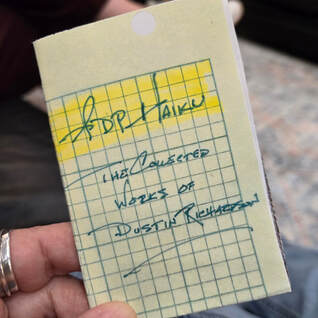 ADP HAIKU
THE COLLECTED
WORKS OF
DUSTIN RICHARDSON